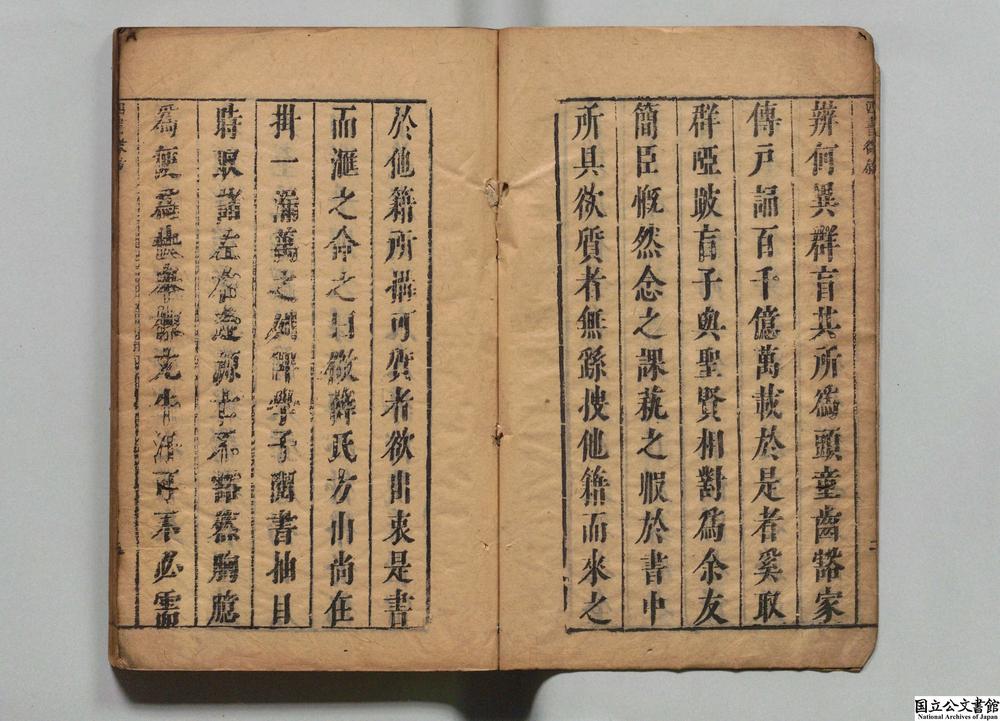 辨何異群盲其所為頭童齒豁家
傳戸誦百千億萬載於是者奚取
群啞跛盲子與聖賢相對為余友
簡臣慨然念之課蓺之暇於書中
所具欲質者無繇搜他籍而來之
於他籍所攜可質者欲由求是書
而滙之命之曰徵薛氏方山尚在
掛一漏萬之列俾學子閱書抽目
時取諸左右逢源七不豁然胸臆
為先生 可不必
国立公文書館
National Archives of Japan